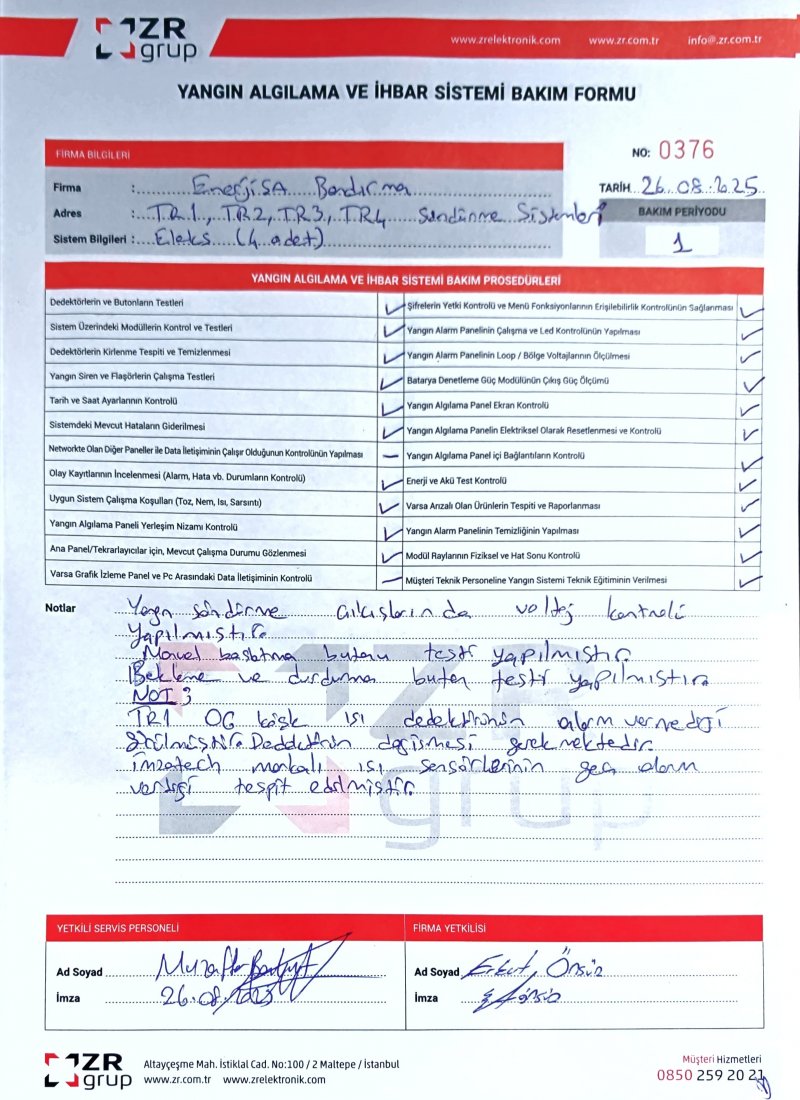 ZR
grup
www.zrelektronik.com www.zr.com.tr info@.zr.com.tr
YANGIN ALGILAMA VE İHBAR SİSTEMİ BAKIM FORMU
FİRMA BİLGİLERİ
NO: 0376
Firma : EnerjiSA Bandırma
TARİH 26.08.2025
Adres : TR1, TR2, TR3, TR4 Söndürme Sistemleri
BAKIM PERİYODU
Sistem Bilgileri : Eleks (4 adet)
1
YANGIN ALGILAMA VE İHBAR SİSTEMİ BAKIM PROSEDÜRLERİ
Dedektörlerin ve Butonların Testleri ✓ Şifrelerin Yetki Kontrolü ve Menü Fonksiyonlarının Erişilebilirlik Kontrolünün Sağlanması ✓
Sistem Üzerindeki Modüllerin Kontrol ve Testleri ✓ Yangın Alarm Panelinin Çalışma ve Led Kontrolünün Yapılması ✓
Dedektörlerin Kirlenme Tespiti ve Temizlenmesi ✓ Yangın Alarm Panelinin Loop / Bölge Voltajlarının Ölçülmesi ✓
Yangın Siren ve Flaşörlerin Çalışma Testleri ✓ Batarya Denetleme Güç Modülünün Çıkış Güç Ölçümü ✓
Tarih ve Saat Ayarlarının Kontrolü ✓ Yangın Algılama Panel Ekran Kontrolü ✓
Sistemdeki Mevcut Hataların Giderilmesi ✓ Yangın Algılama Panelin Elektriksel Olarak Resetlenmesi ve Kontrolü ✓
Networkte Olan Diğer Paneller ile Data İletişiminin Çalışır Olduğunun Kontrolünün Yapılması — Yangın Algılama Panel içi Bağlantıların Kontrolü ✓
Olay Kayıtlarının İncelenmesi (Alarm, Hata vb. Durumların Kontrolü) ✓ Enerji ve Akü Test Kontrolü ✓
Uygun Sistem Çalışma Koşulları (Toz, Nem, Isı, Sarsıntı) ✓ Varsa Arızalı Olan Ürünlerin Tespiti ve Raporlanması ✓
Yangın Algılama Paneli Yerleşim Nizamı Kontrolü ✓ Yangın Alarm Panelinin Temizliğinin Yapılması ✓
Ana Panel/Tekrarlayıcılar için, Mevcut Çalışma Durumu Gözlenmesi ✓ Modül Raylarının Fiziksel ve Hat Sonu Kontrolü ✓
Varsa Grafik İzleme Panel ve Pc Arasındaki Data İletişiminin Kontrolü — Müşteri Teknik Personeline Yangın Sistemi Teknik Eğitiminin Verilmesi ✓
Notlar Yangın söndürme çıkışlarında voltaj kontrolü
Yapılmıştır.
Manuel başlatma butonu testi yapılmıştır.
Bekleme ve durdurma buton testi yapılmıştır.
NOT:
TR1 OG köşk ısı dedektörünün alarm vermediği
görülmüştür. Dedektörün değişmesi gerekmektedir.
imzatech markalı ısı sensörlerinin geç alarm
verdiği tespit edilmiştir.
YETKİLİ SERVİS PERSONELİ FİRMA YETKİLİSİ
Ad Soyad Muzaffer Ad Soyad Erkut Örsüz
İmza 26.08. İmza
ZR
grup
Altayçeşme Mah. İstiklal Cad. No:100 / 2 Maltepe / İstanbul
www.zr.com.tr www.zrelektronik.com
Müşteri Hizmetleri
0850 259 20 21